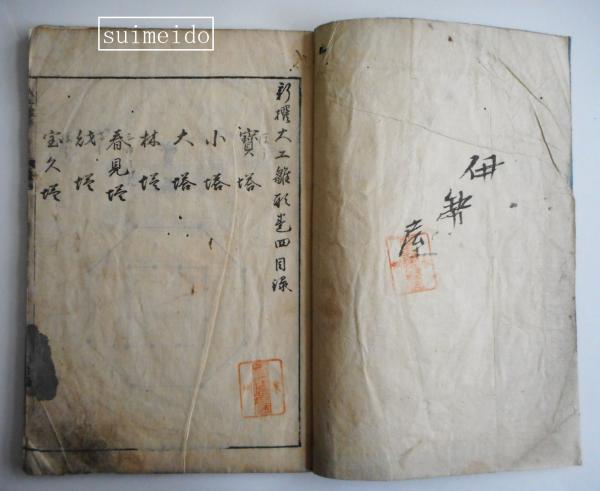 suimeido
伊
屋
新撰大工雛形卷四目録
寳塔
小塔
大塔
林塔
春見塔
塔
宝久塔